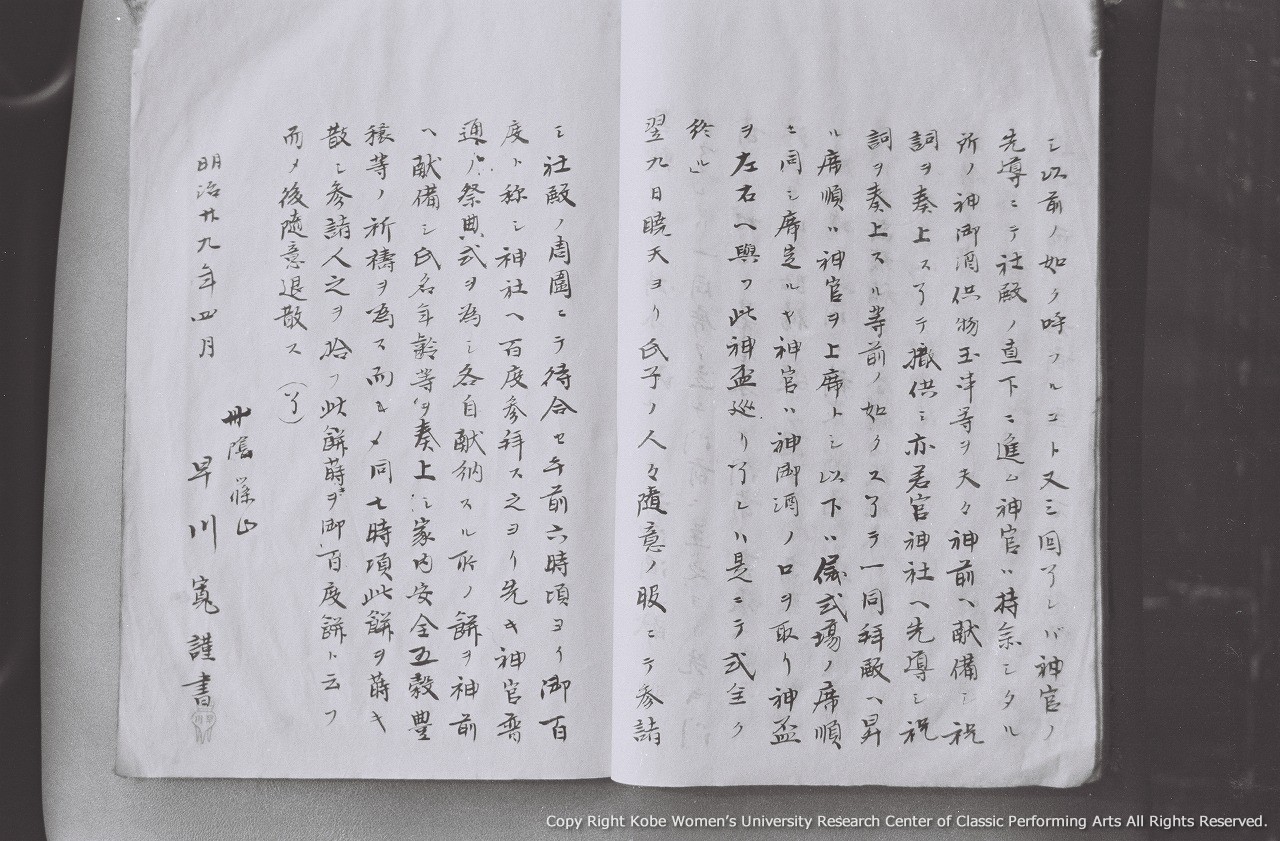 シ以前ノ如ク呼フルコト又三回了レバ神官ノ
先導ニテ社殿ノ直下ニ進ム神官ハ持参シタル
所ノ神御酒供物玉串等ヲ夫々神前ヘ献備シ祝
詞ヲ奏上ス了テ撤供シ亦若宮神社ヘ先導シ祝
詞ヲ奏上スル等前ノ如クス了テ一同拝殿ヘ昇
ル席順ハ神官ヲ上席トシ以下ハ儀式場ノ席順
ニ同シ席定ルヤ神官ハ神御酒ノ口ヲ取リ神盃
ヲ左右ヘ與フ此神盃巡リ了レハ是ニテ式全ク
終ル」
翌九日暁天ヨリ氏子ノ人々随意ノ服ニテ参詣
シ社殿ノ周囲ニテ待合セ午前六時頃ヨリ御百
度ト称シ神社ヘ百度参拝ス之ヨリ先キ神官普
通ノ祭典式ヲ為シ各自献納スル所ノ餅ヲ神前
ヘ献備シ氏名年齢等ヲ奏上シ家内安全五穀豊
穣等ノ祈祷ヲ為ス而シテ同七時頃此餅ヲ蒔キ
散シ参詣人之ヲ拾フ此餅蒔ヲ御百度餅ト云フ
而〆後随意退散ス (了)
明治廿九年四月
丹陰篠山
早川 寛謹書
Copy Right Kobe Women's University Research Center of Classic Performing Arts All Rights Reserved.